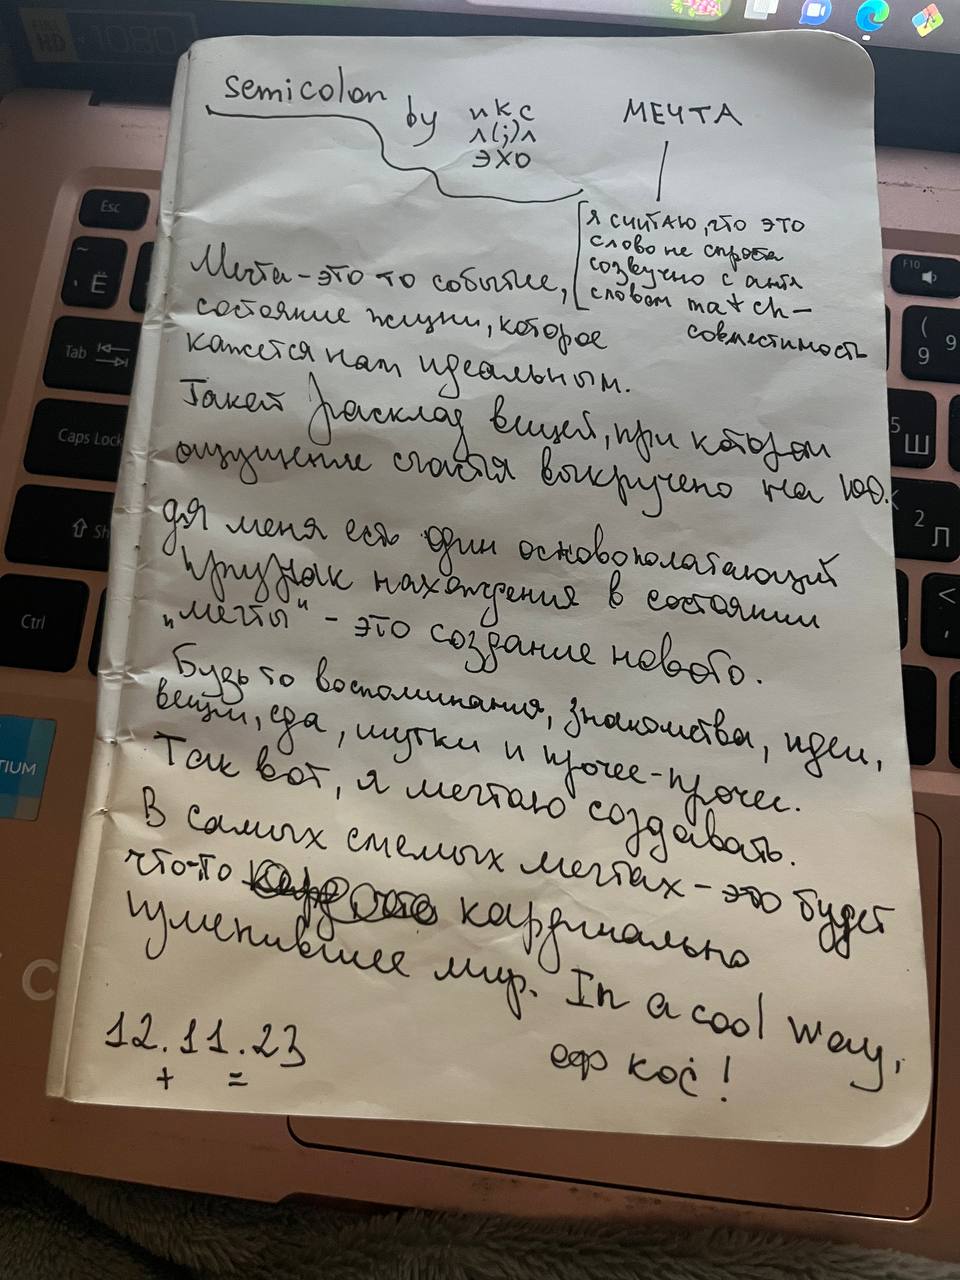 semicolon
by
икс
л(;)л
эхо
МЕЧТА
я считаю, что это
слово не спроста
созвучно с англ
словом match -
совместимость
Мечта - это то событие,
состояние жизни, которое
кажется нам идеальным.
Такой расклад вещей, при котором
ощущение счастья выкручено на 100.
для меня есть один основополагающий
признак нахождения в состоянии
„мечты" - это создание нового.
Будь то воспоминания, знакомства, идеи,
вещи, еда, шутки и прочее-прочее.
Так вот, я мечтаю создавать.
В самых смелых мечтах - это будет
что-то кардинально
изменившее мир. In a cool way,
оф кос!
12.11.23
+ =
FULL
HD
1080
Esc
Ё
Tab
Caps Lock
Sh
Ctrl
TIUM
C
F10
(
9
9
5
Ш
2
Л
<
,